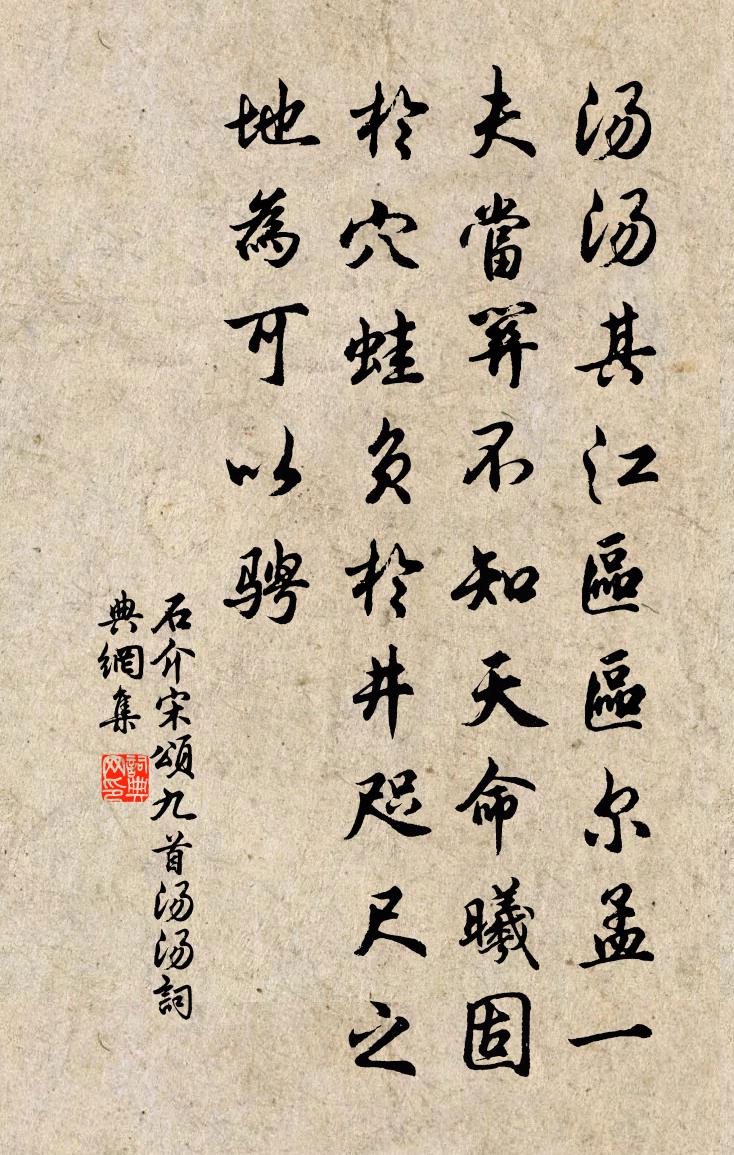 汤汤其江區區尔孟一
夫當筓不知天命曦固
於穴蛙负於井咫尺之
地為可以骋
石介宋頌九首汤汤詞
典網集
詞典
网印